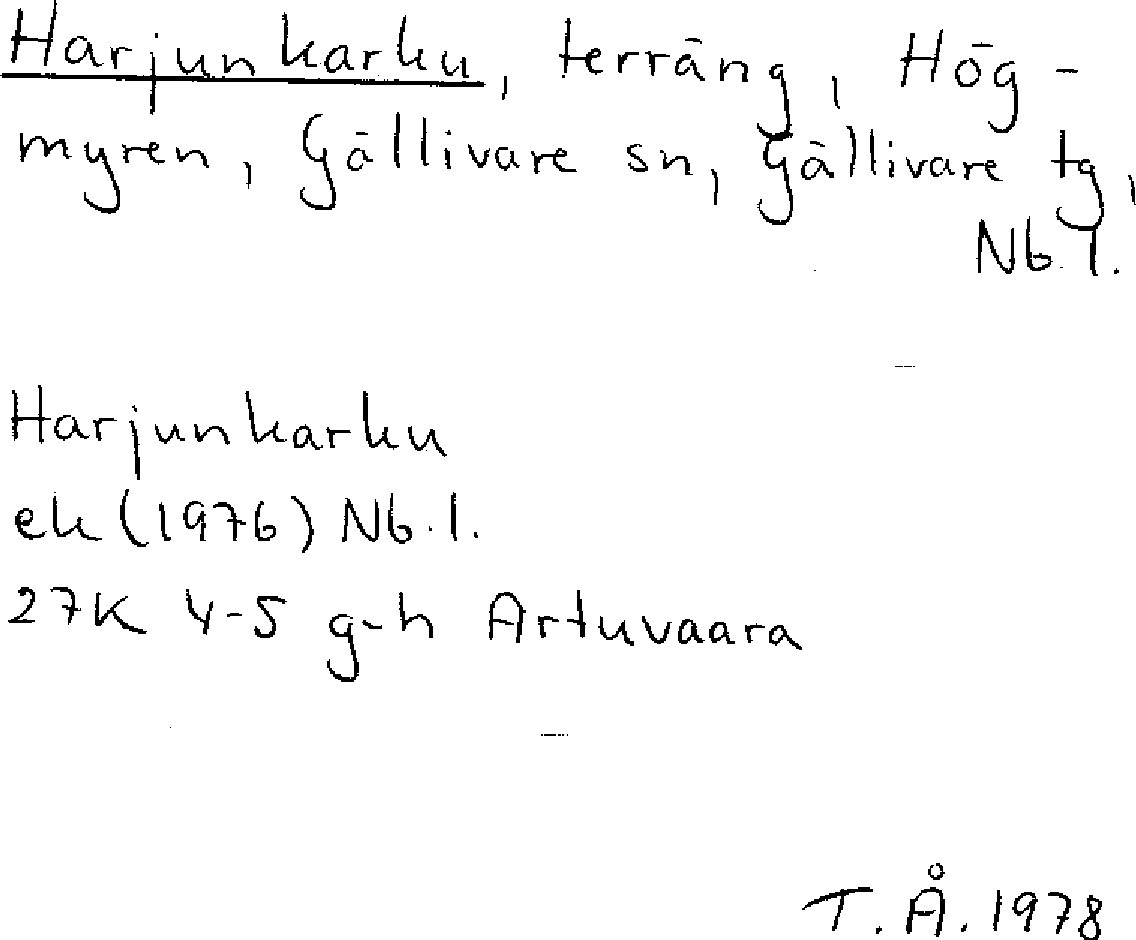 Harjunkarku, terräng, Hög-
myren, Gällivare sn, Gällivare tg,
Nb.l.
Harjunkarku
ek (1976) Nb.l.
27K 4-5 g-h Artuvaara
T.Å. 1978